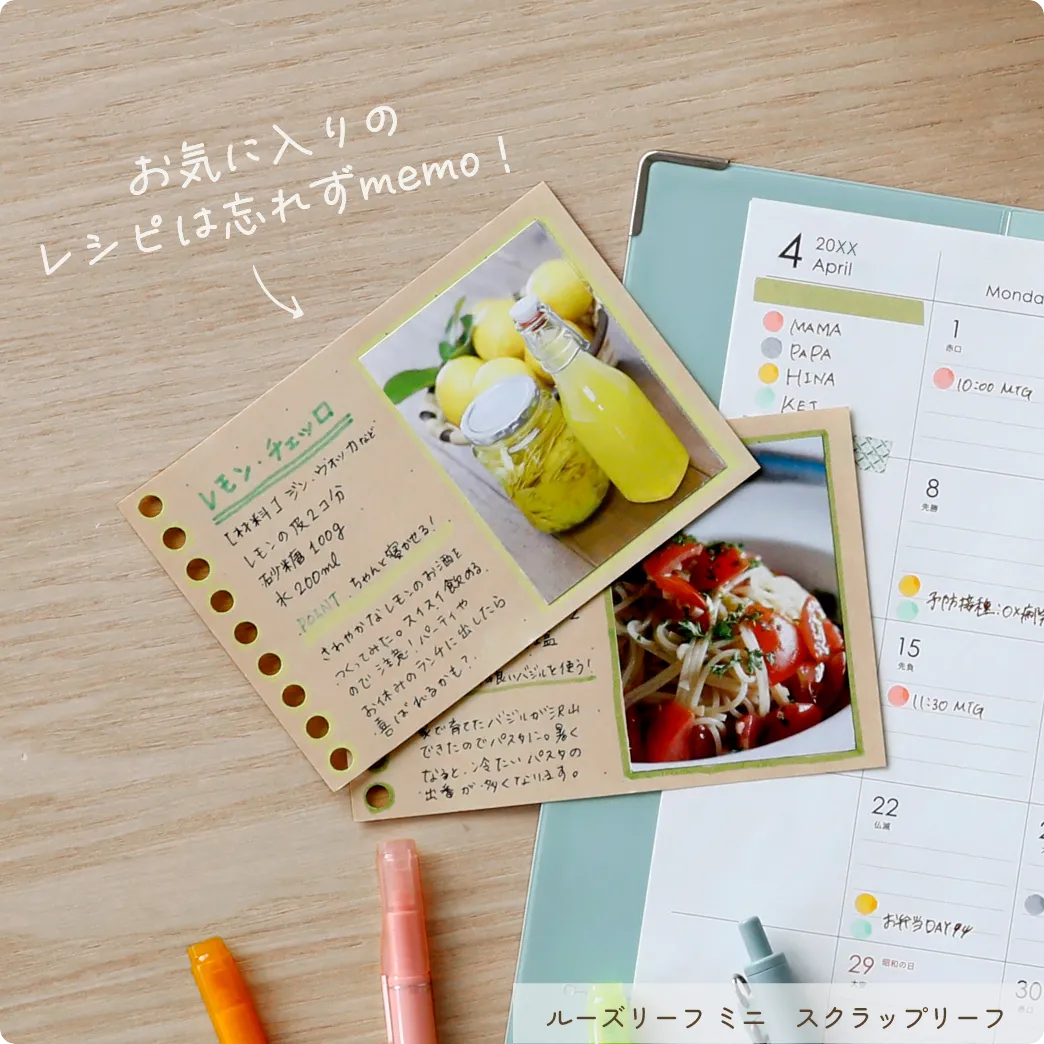 お気に入りの
レシピは忘れずmemo!
レモン・チェッロ
[材料] ジン・ウォッカなど
レモンの皮2コ分
砂糖 100g
水 200ml
POINT ちゃんと寝かせる!
さわやかなレモンのお酒を
つくってみた。スイスイ飲める
ので注意!パーティや
お休みのランチに出したら
喜ばれるかも?
良いバジルを使う!
家で育てたバジルが沢山
できたのでパスタに。暑く
なると、冷たいパスタの
出番が多くなります。
4 20XX
April
MAMA
PAPA
HINA
KEI
Monda
1
赤口
10:00 MTG
8
先勝
予防接種:〇×病院
15
先負
11:30 MTG
22
仏滅
お弁当DAY
29 昭和の日
30
ルーズリーフ ミニ スクラップリーフ